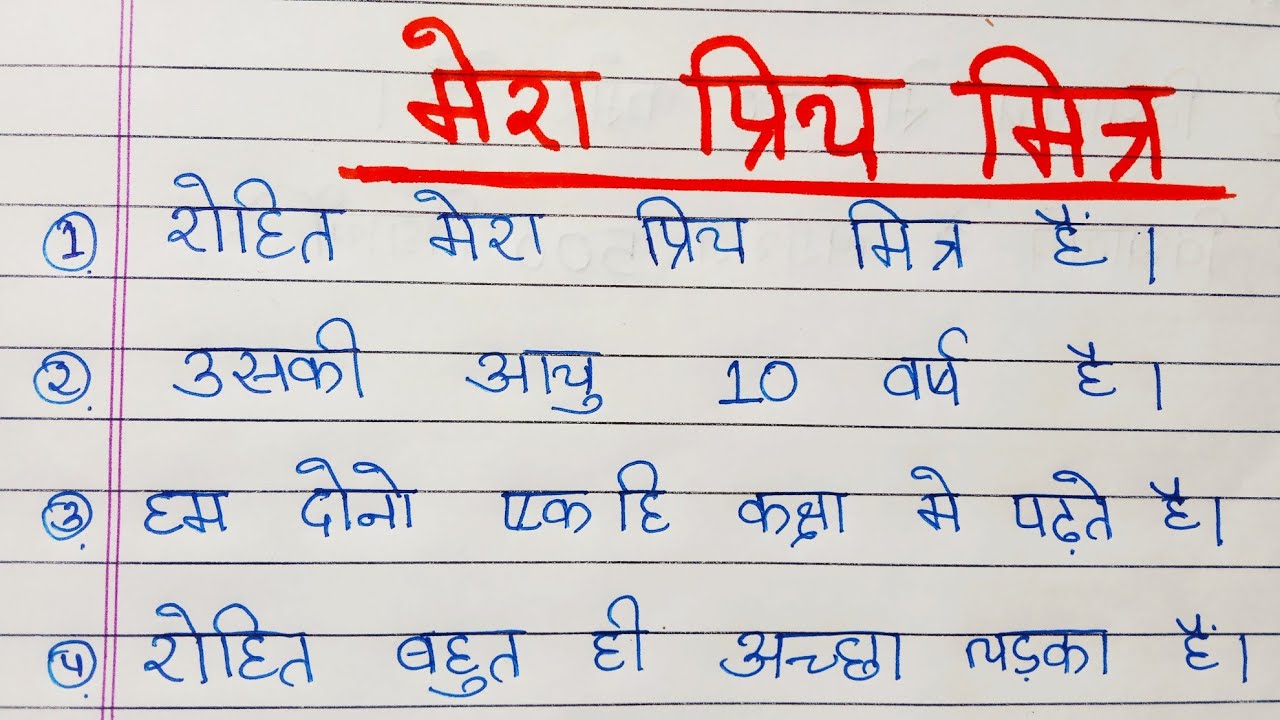 मेरा प्रिय मित्र
1. रोहित मेरा प्रिय मित्र हैं।
२. उसकी आयु 10 वर्ष है।
३. हम दोनो एक हि कक्षा मे पढ़ते है।
४. रोहित बहुत ही अच्छा लड़का हैं।